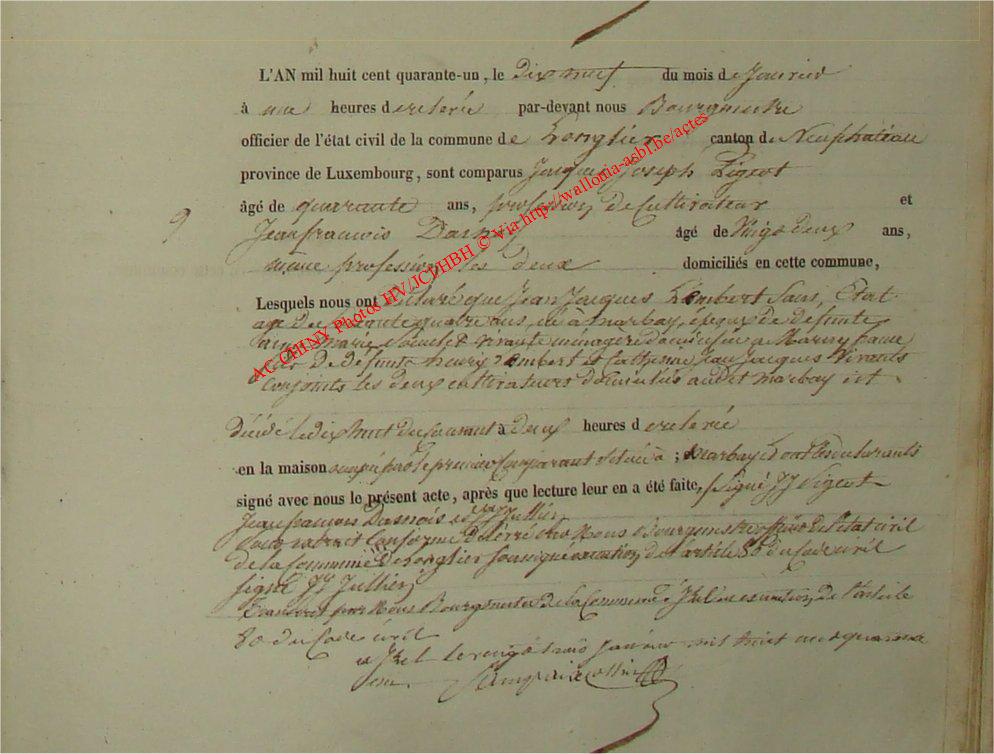 L'AN mil huit cent quarante-un, le dix neuf du mois de Janvier
à une heures de relevée par-devant nous Bourgmestre
officier de l'état civil de la commune de Longlier canton de Neufchateau
province de Luxembourg, sont comparus Jacques Joseph Ligeot
âgé de quarante ans, profession de Cultivateur et
9 Jean françois Dasnois âgé de Vingt deux ans,
même profession les deux domiciliés en cette commune,
Lesquels nous ont déclaré que Jean Jacques Lambert Sans, Etat
agé de quatre ans, né à marbay, époux de défunte
marie vivante menagere domiciliée a
de défunts henry Lambert et Catherine Jean Jacques Vivants
Conjoints les deux cultivateurs domiciliés audit marbay est
décédé le dix huit du Courant à deux heures de relevée
en la maison occupé par le premier Comparant située à ; Marbay et ont les déclarants
signé avec nous le présent acte, après que lecture leur en a été faite, signé JJ Ligeot
Jean françois Dasnois et JJ Jullien
Pour extrait Conforme délivré par Nous Bourgmestre officier de l'état civil
de la Commune de Longlier soussigné en exécution de l'article 80 du Code civil
signé JJ Jullien
Transcrit par Nous Bourgmestre de la Commune d'Izel en exécution de l'article
80 du Code civil
a Izel le vingt trois Janvier mil huit cent quarante
un.
AC CHINY Photos HV/JCI/HBH © Via http://wallonia-asbl.be/actes